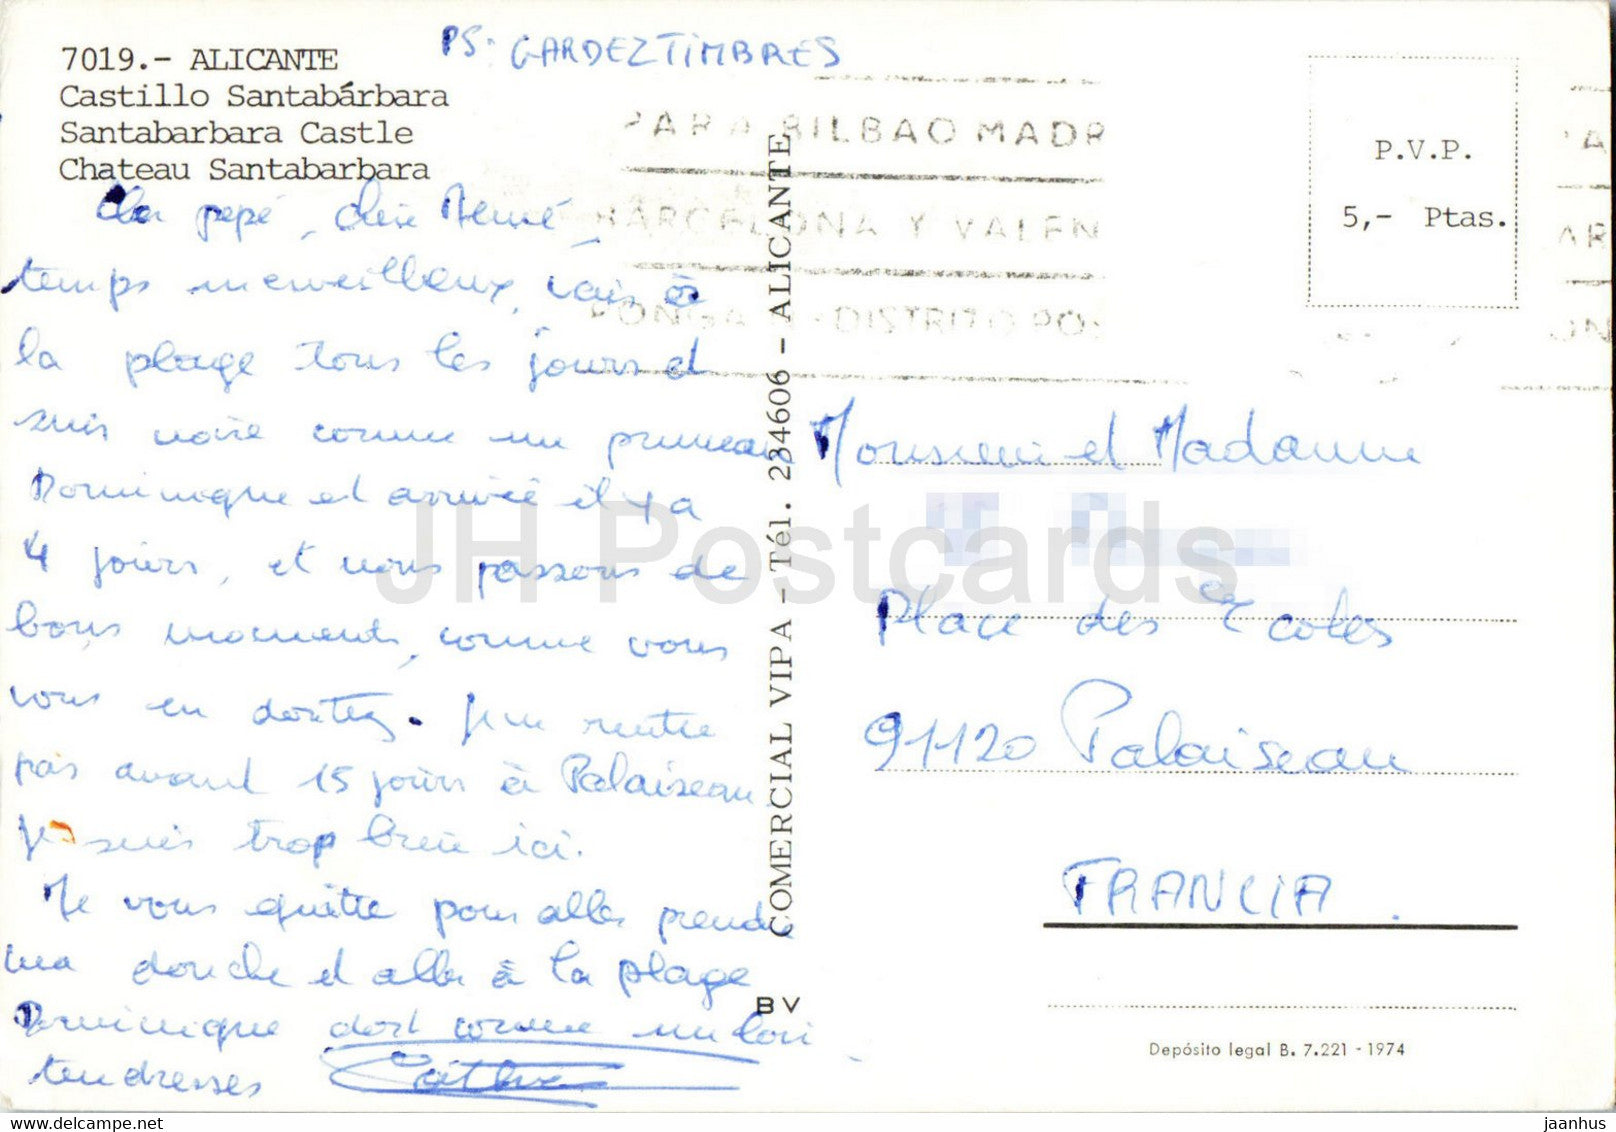 7019.- ALICANTE
Castillo Santabárbara
Santabarbara Castle
Chateau Santabarbara
PS. GARDEZ TIMBRES
PARA BILBAO MADR
BARCELONA Y VALEN
PONGA DISTRITO POS
P.V.P.
5,- Ptas.
Cher pepé, chère Mémé,
temps merveilleux, vais à
la plage tous les jours et
suis noire comme un pruneau
Dominique est arrivée il y a
4 jours, et nous passons de
bons moments, comme vous
vous en doutez. Je ne rentre
pas avant 15 jours à Palaiseau
Je suis trop bien ici.
Je vous quitte pour aller prendre
ma douche et aller à la plage
Dominique dort comme un loir
tendresses
COMERCIAL VIPA - Tél. 234606 - ALICANTE
BV
Monsieur et Madame
Place des Ecoles
91120 Palaiseau
FRANCIA.
Depósito legal B. 7.221 - 1974
JH Postcards
jaanhus
delcampe.net